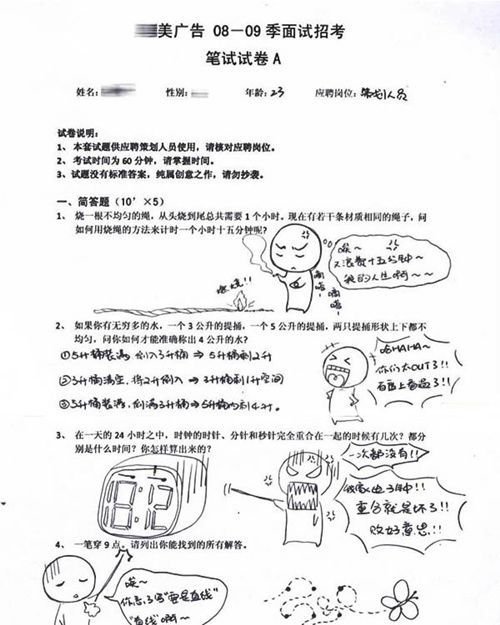 美广告 08－09 季面试招考
笔试试卷 A
姓名： 性别： 年龄：23 应聘岗位：策划人员
试卷说明：
1、 本套试题供应聘策划人员使用，请核对应聘岗位。
2、 考试时间为 60 分钟，请掌握时间。
3、 试题没有标准答案，纯属创意之作，请勿抄袭。
一、简答题（10’×5）
1、 烧一根不均匀的绳，从头烧到尾总共需要 1 个小时。现在有若干条材质相同的绳子，问
如何用烧绳的方法来计时一个小时十五分钟呢？
唉~
又浪费十五分钟
我的人生啊~~
2、 如果你有无穷多的水，一个 3 公升的提捅，一个 5 公升的提捅，两只提捅形状上下都不
均匀，问你如何才能准确称出 4 公升的水？
①5升桶装满，倒入3升桶⇒5升桶剩2升
②3升桶清空，将2升倒入⇒3升桶剩1升空间
③5升桶装满，倒满3升桶⇒5升桶内剩4升。
哈HAHA~
你们太OUT了!!
3、 在一天的 24 小时之中，时钟的时针、分针和秒针完全重合在一起的时候有几次？都分
别是什么时间？你怎样算出来的？
一次都没有!!
重合就是坏了!!
18:12
4、 一笔穿 9 点。请列出你能找到的所有解答。
唉~
你忘了写"要是直线"
"直线"啊~